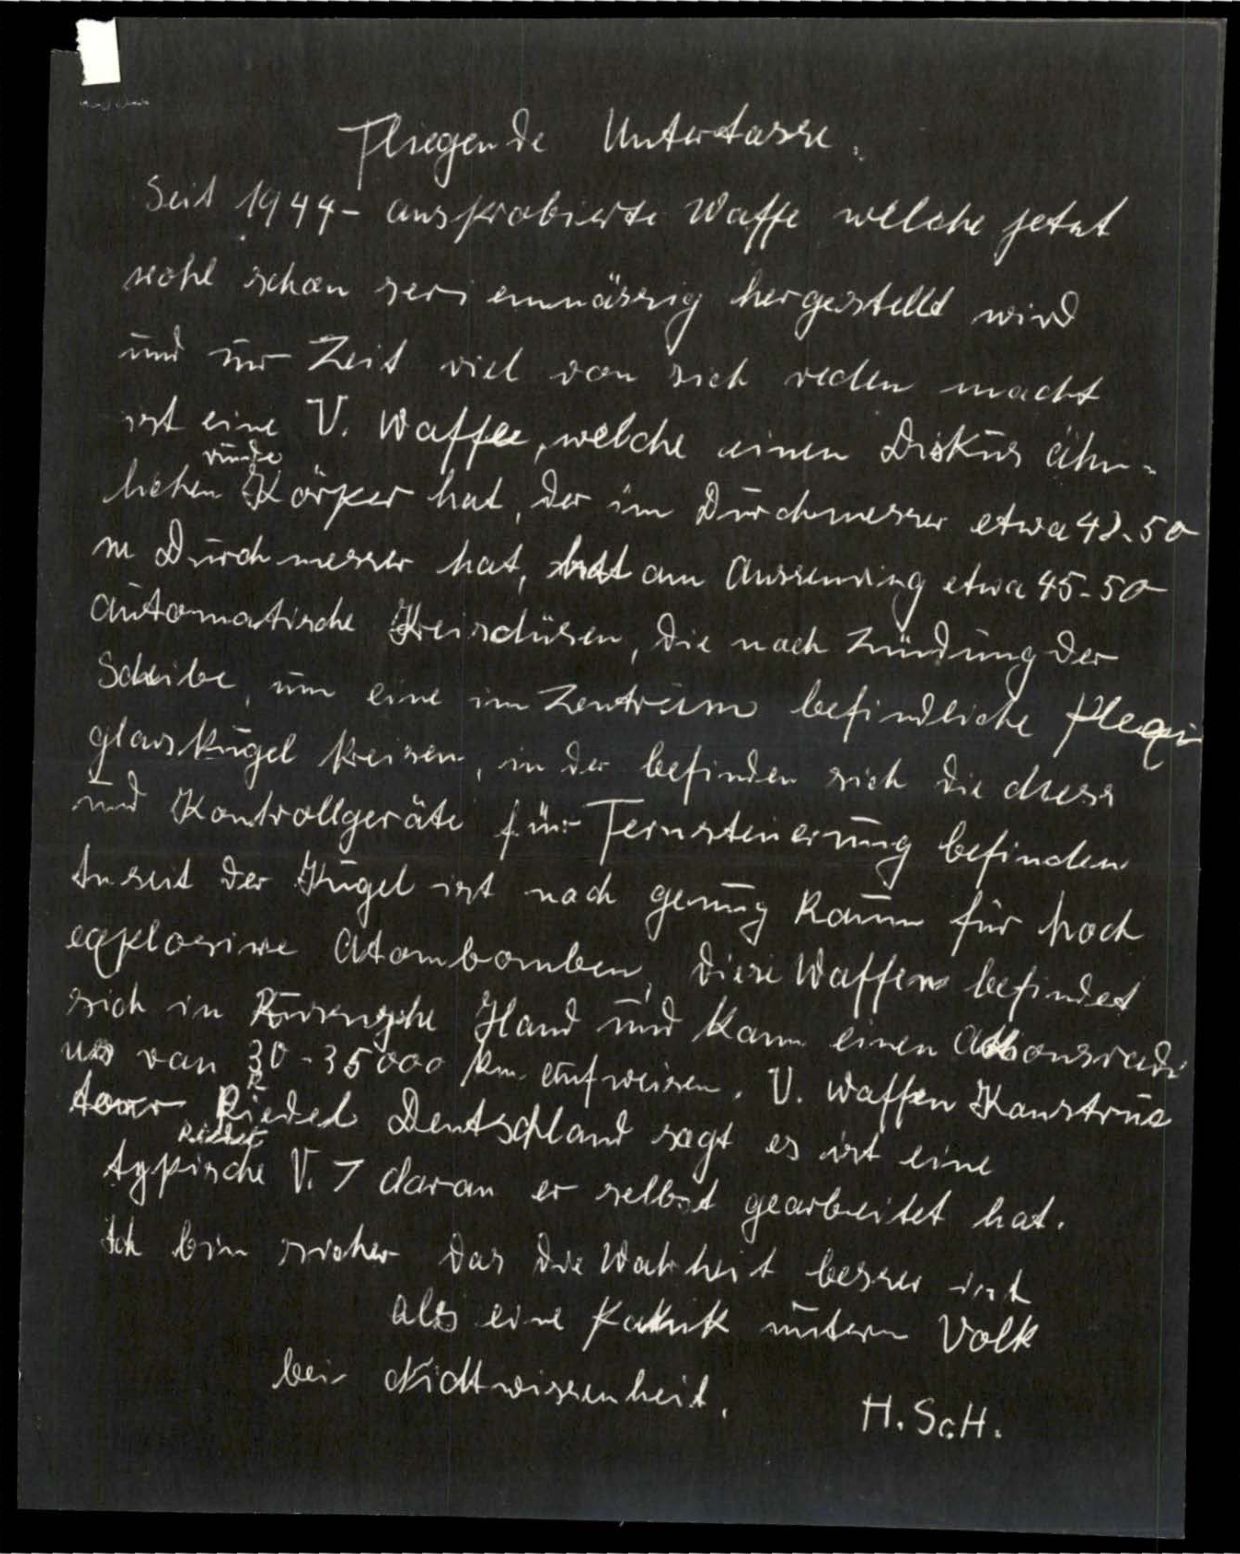 Fliegende Untertasse.
Seit 1944- ausprobierte Waffe welche jetzt
wohl schon serienmässig hergestellt wird
und zur Zeit viel von sich reden macht
ist eine V. Waffe, welche einen Diskus ähn-
runde
lichen Körper hat, der im Durchmesser etwa 42-50
m Durchmesser hat, hat am Aussenring etwa 45-50
automatische Kreisdüsen, die nach Zündung der
Scheibe, um eine im Zentrum befindliche Plexi
glaskugel kreisen, in der befinden sich die
und Kontrollgeräte für Fernsteuerung befinden
der Kugel ist noch genug Raum für hoch
explosive Atombomben, diese Waffen befindet
sich in Hand und kann einen Aktionsradi
us von 30-35000 km aufweisen. V. Waffen Konstruk
R
teur Riedel Deutschland sagt es ist eine
Riedel
typische V. 7 daran er selbst gearbeitet hat.
Ich bin sicher das die Wahrheit besser ist
als eine unterm Volk
bei Nichtwissenheit.
H. ScH.